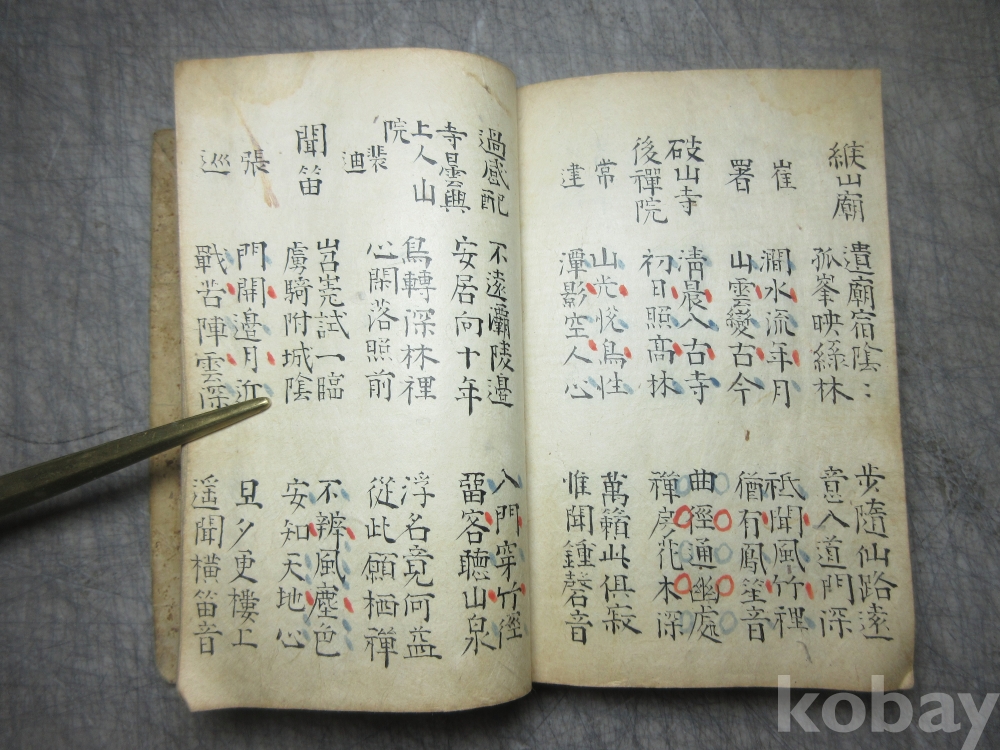 緱山廟
崔
署
遺廟宿陰:
孤峯映綠林
步隨仙路遠
意入道門深
澗水流年月
山雲變古今
祗聞風竹裡
猶有鳳笙音
破山寺
後禪院
常
建
清晨入古寺
初日照高林
曲徑通幽處
禪房花木深
山光悅鳥性
潭影空人心
萬籟此俱寂
惟聞鍾磬音
過感配
寺曇興
上人山
院
裴
迪
不遠灞陵邊
安居向十年
入門穿竹徑
留客聽山泉
鳥轉深林裡
心閑落照前
浮名竟何益
從此願栖禪
聞笛
張
巡
岧嶤試一臨
虜騎附城陰
不辨風塵色
安知天地心
門開邊月近
戰苦陣雲深
旦夕更樓上
遙聞橫笛音
kobay